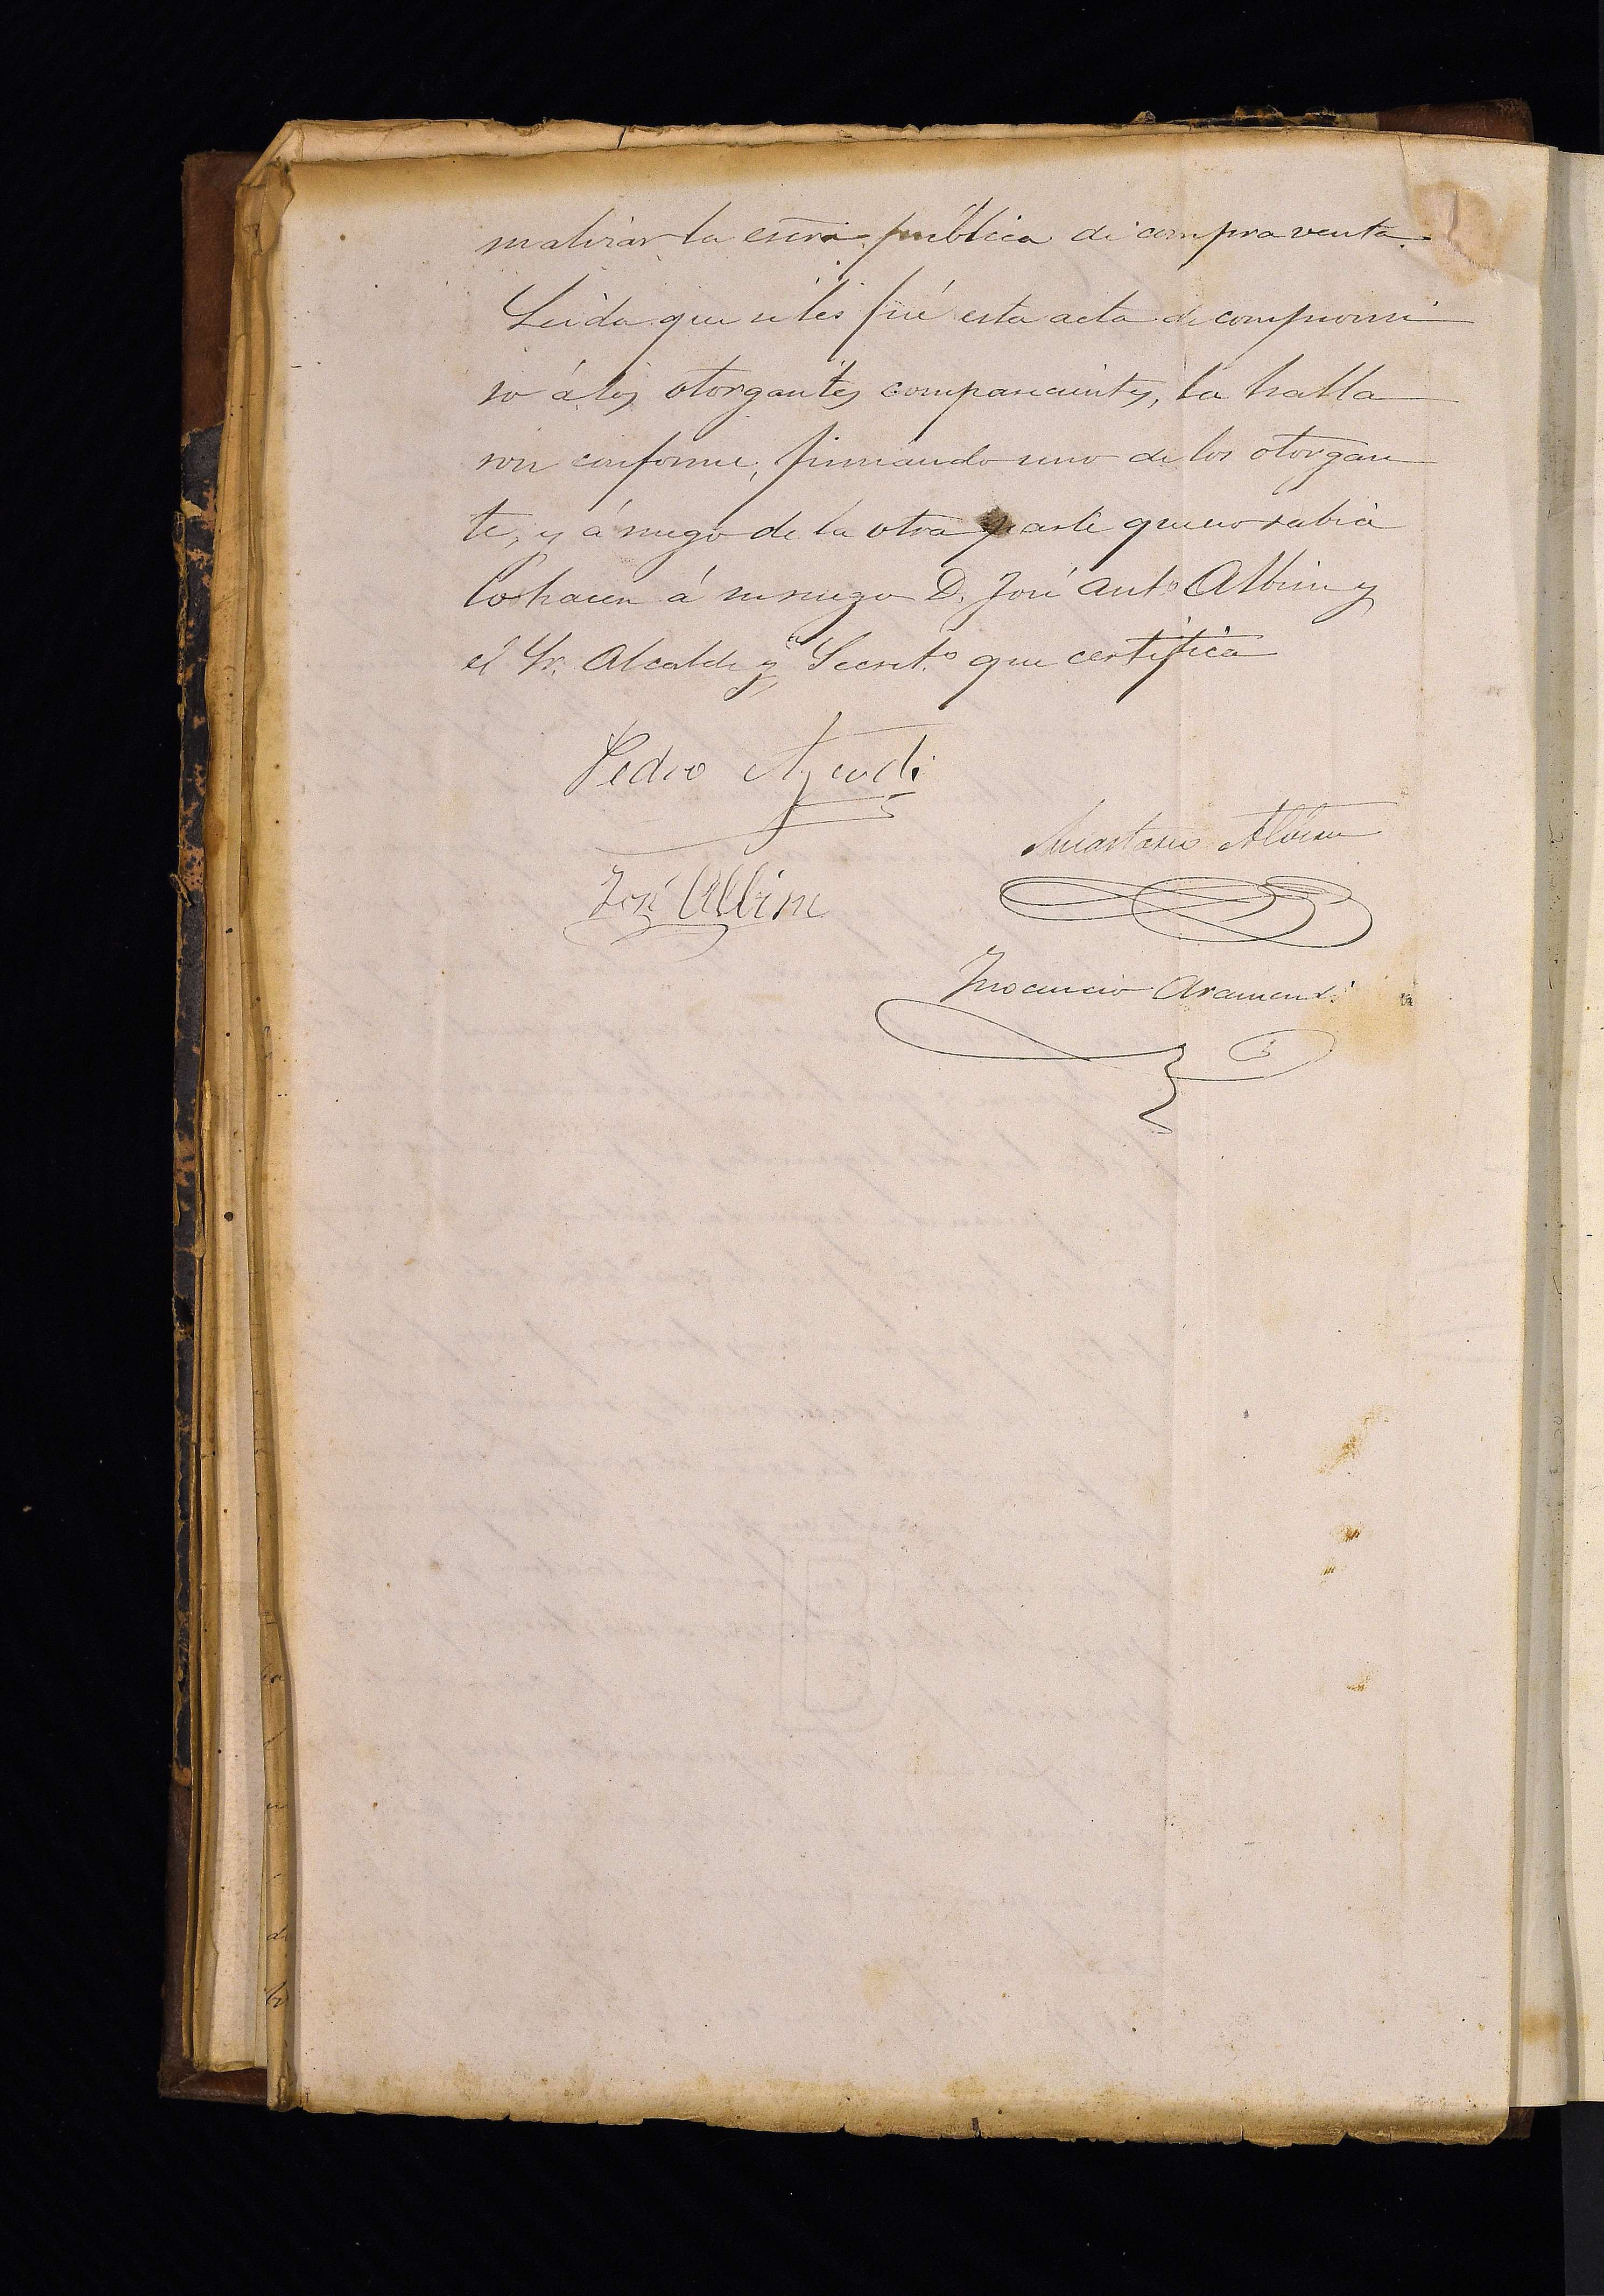 malizar la escra pública de compra venta.
Leida que se les fué esta acta de compromi
so á los otorgantes comparecientes, la halla
ron conforme, firmando uno de los otorgan
te, y á ruego de la otra parte que no sabia
lo hacen á su ruego D. José Antº Albim y
el Sr. Alcalde y Secretº que certifica
Pedro Azcudi
José Albim
Anastasio Albim
Inocencio Aramendi